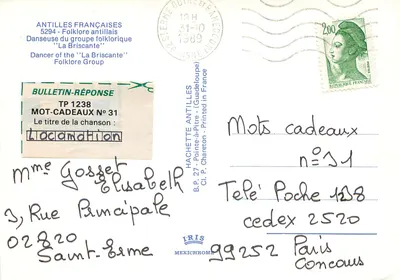 ANTILLES FRANÇAISES
5294 - Folklore antillais
Danseuse du groupe folklorique
"La Briscante"
Dancer of the "La Briscante"
Folklore Group
BULLETIN-RÉPONSE
TP 1238
MOT-CADEAUX N° 31
Le titre de la chanson :
Locomotion
Mme Gosset
Elisabeth
3, Rue Principale
02820
Saint-Erme
HACHETTE ANTILLES
B.P. 27 - Pointe-à-Pitre - (Guadeloupe)
Cl. P. Chareton - Printed in France
IRIS
MEXICHROME
2,00
Mots cadeaux
n°31
Télé Poche 1238
cedex 2520
99252 Paris
Concours